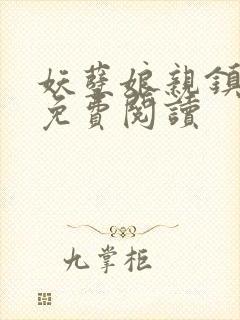 妖孽娘親鎮
免費閱讀
九掌柜